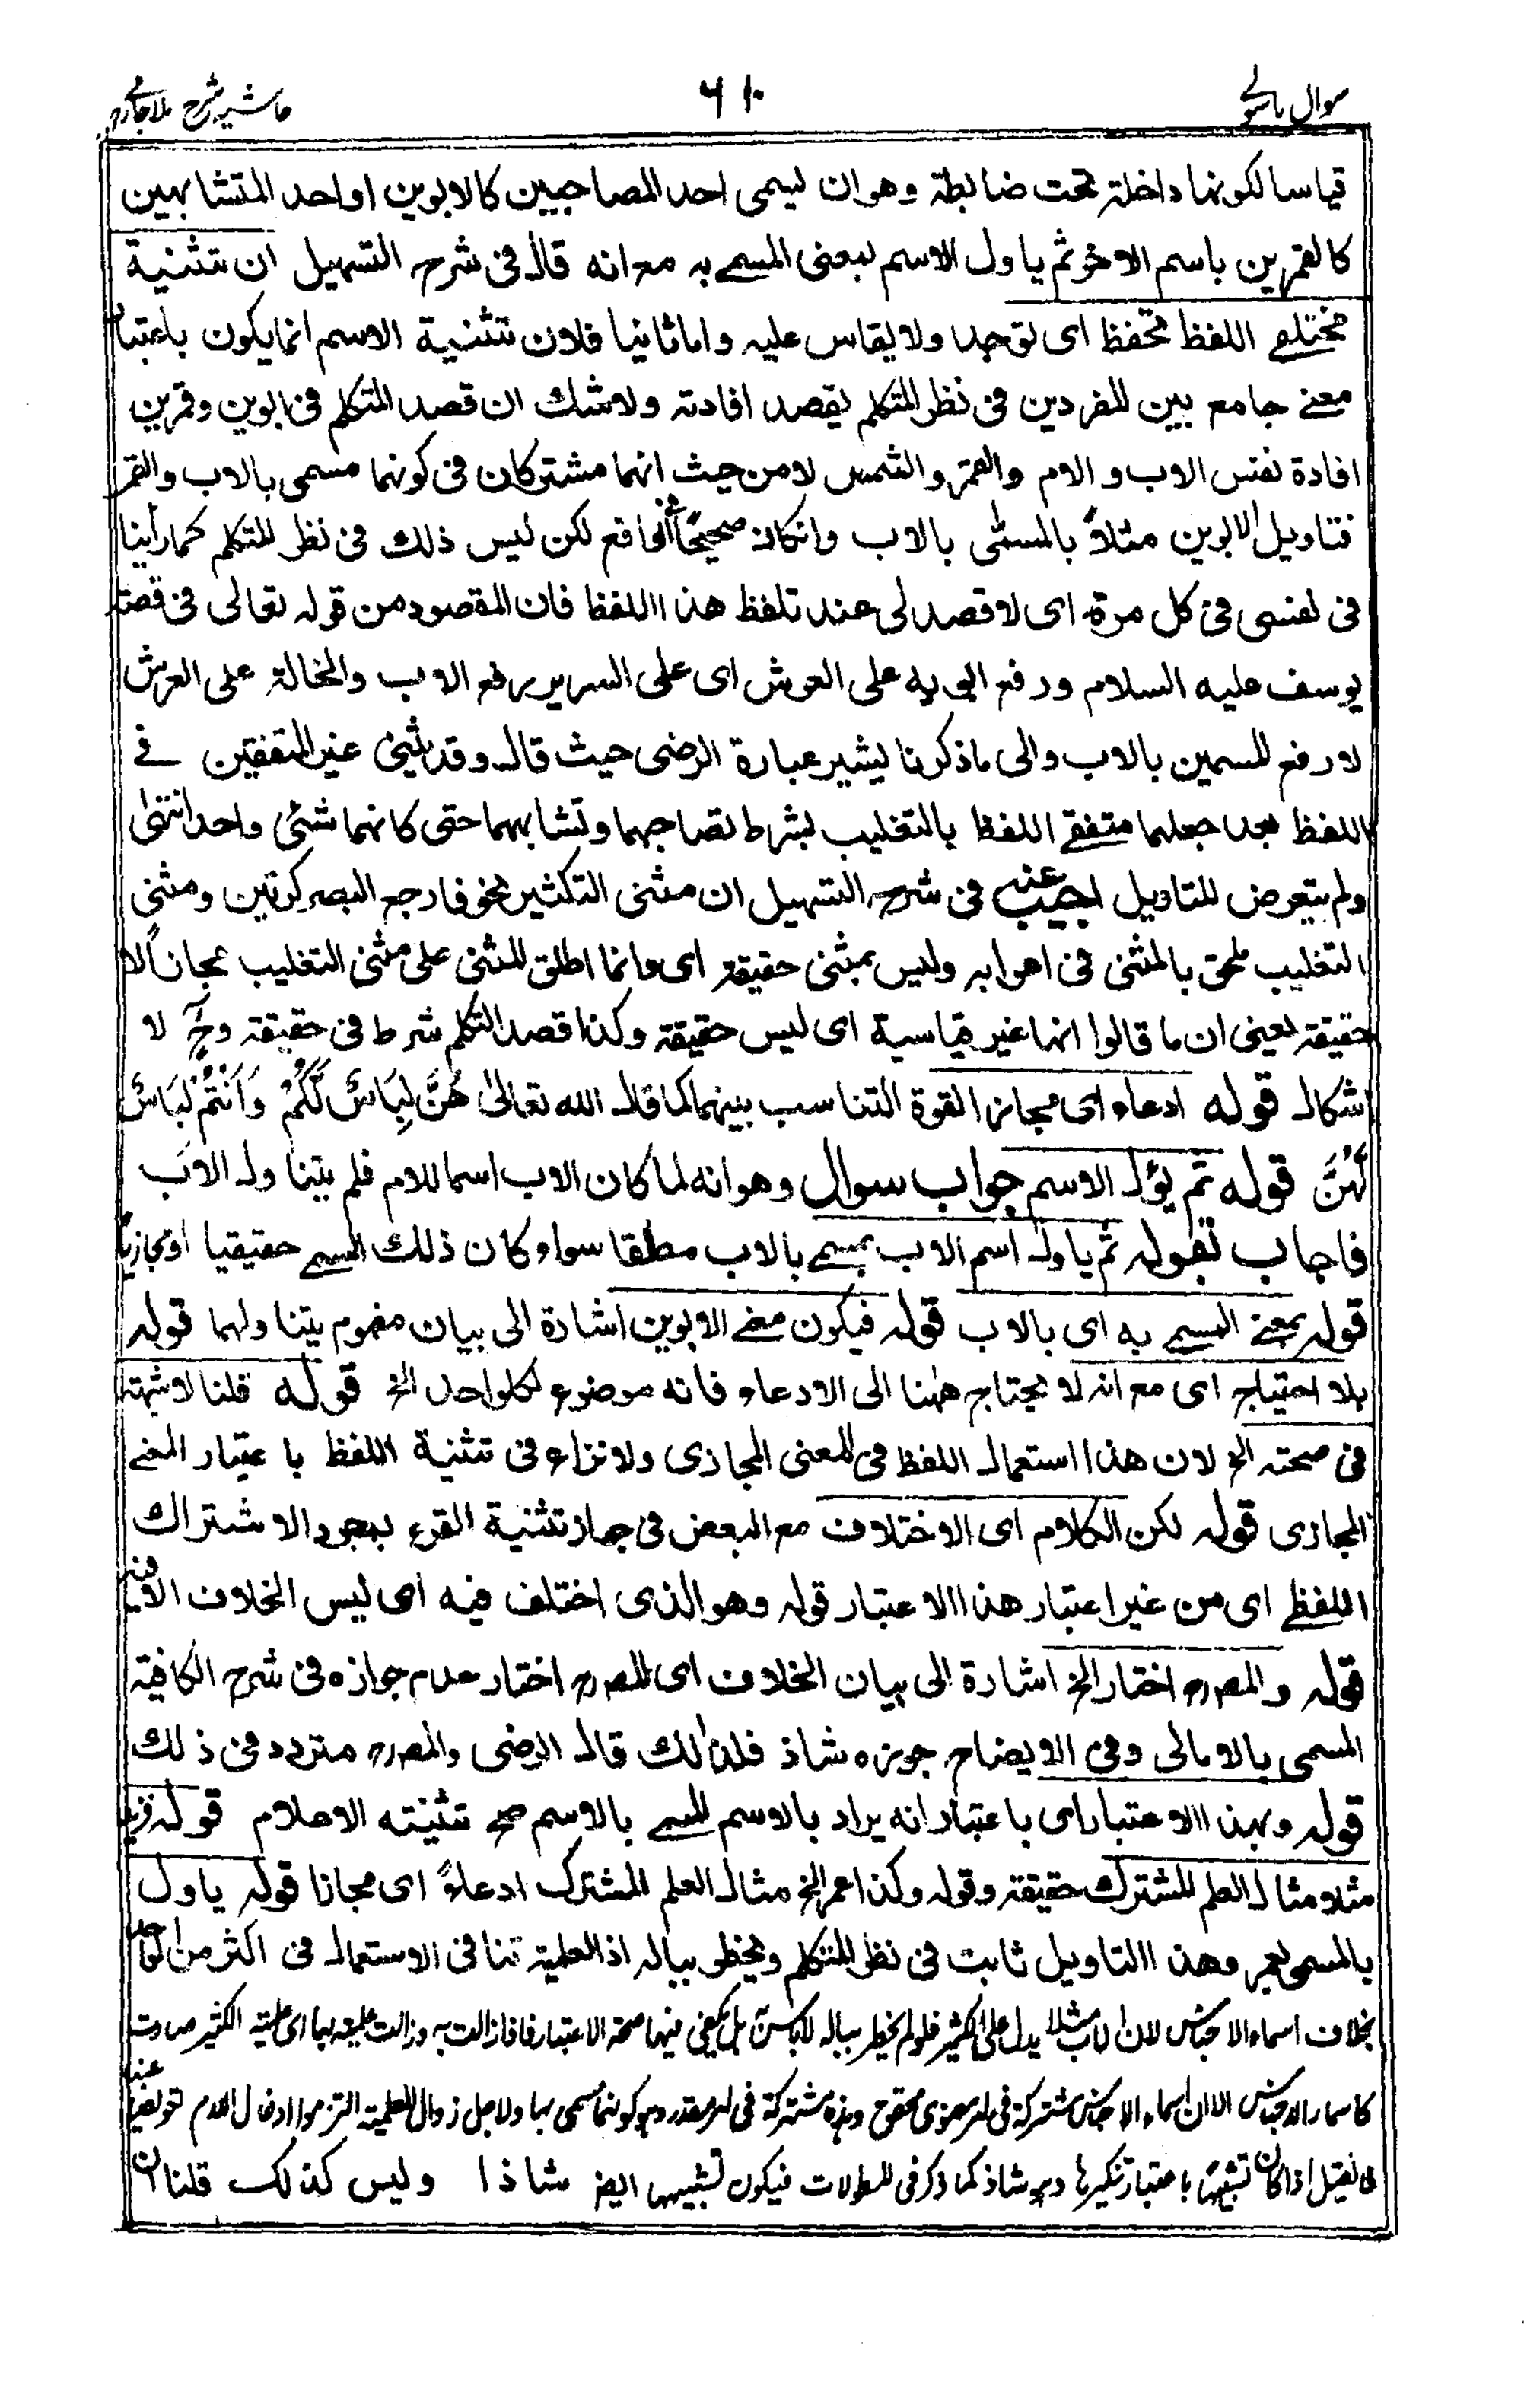 سوال باسولی ۶۱۰ حاشیہ شرح ملا جامی
قياسا لكونها داخلة تحت ضابطة وهو ان يسمى احد المصاحبين كالابوين او احد المتشابهين
كالقمرين باسم الاخر ثم ياول الاسم بمعنى المسمى به مع انه قال فى شرح التسهيل ان تثنية
مختلفى اللفظ تحفظ اى توجد ولا يقاس عليه واما ثانيا فلان تثنية الاسم انما يكون باعتبار
معنے جامع بين المفردين فى نظر المتكلم يقصد افادته ولا شك ان قصد المتكلم فى ابوين وقمرين
افادة نفس الاب و الام والقمر والشمس لا من حيث انهما مشتركان فى كونهما مسمى بالاب والقمر
فتاويل الابوين مثلاً بالمسمّى بالاب وانكان صحيحًا فى الواقع لكن ليس ذلك فى نظر المتكلم كما رأينا
فى نفسى فى كل مرة اى لا قصد لى عند تلفظ هذا اللفظ فان المقصود من قوله تعالى فى قصة
يوسف عليه السلام ورفع ابويه على العرش اى على السرير رفع الاب والخالة على العرش
لا رفع المسميين بالاب والى ما ذكرنا يشير عبارة الرضى حيث قال وقد يثنى غير المتفقين فے
اللفظ بعد جعلهما متفقے اللفظ بالتغليب بشرط تصاحبهما وتشابههما حتى كانهما شئى واحد انتهى
ولم يتعرض للتاويل اجيب عنه فى شرح التسهيل ان مثنى التكثير نحو فارجع البصر كرتين ومثنى
التغليب ملحق بالمثنى فى اعرابه وليس بمثنى حقيقة اى وانما اطلق المثنى على مثنى التغليب مجازاً لا
حقيقة يعنى ان ما قالوا انها غير قياسية اى ليس حقيقة وكذا قصد المتكلم شرط فى حقيقة وحٍ لا
اشكال قوله ادعاء اى مجازا لقوة التناسب بينهما كما قال الله تعالىٰ هُنَّ لِبَاسٌ لَّكُمْ وَاَنْتُمْ لِبَاسٌ
لَّهُنَّ قوله ثم يؤل الاسم جواب سوال وهو انه لما كان الاب اسما للام فلم يتناول الاب
فاجاب بقوله ثم ياول اسم الاب بمسمے بالاب مطلقا سواء كان ذلك المسمے حقيقيا او مجازيًا
قوله بمعنے المسمے به اى بالاب قوله فيكون معنے الابوين اشارة الى بيان مفهوم يتناولهما قوله
بلا احتياج اى مع انه لا يحتاج ههنا الى الادعاء فانه موضوع لكل واحد الخ قوله قلنا لا شبهة
فى صحته الخ لان هذا استعمال اللفظ فى المعنى المجازى ولا نزاع فى تثنية اللفظ با عتبار المعنے
المجازى قوله لكن الكلام اى الاختلاف مع البعض فى جواز تثنية القرء بمجرد الاشتراك
اللفظے اى من غير اعتبار هذا الاعتبار قوله وهو الذى اختلف فيه اى ليس الخلاف الا فيه
قوله والمصره اختار الخ اشارة الى بيان الخلاف اى المصره اختار عدم جوازه فى شرح الكافية
المسمى بالامالى وفى الايضاح جوزه شاذ فلذالك قال الرضى والمصره متردد فى ذلك
قوله وبهذا الاعتبار اى باعتبار انه يراد بالاسم المسمے بالاسم صح تثنيته الاعلام قوله زيد
مثلا مثال العلم المشترك حقيقة وقوله وكذا عمر الخ مثال العلم المشترك ادعاءً اى مجازا قوله ياول
بالمسمى بعمر وهذا التاويل ثابت فى نظر المتكلم ويخطر بباله اذ العلمية تنافى الاستعمال فى اكثر من الواحد
بخلاف اسماء الاجناس لان الاب مثلا يدل على الكثير فلو لم يخطر بباله لا باس بل يكفى فيها صحة الاعتبار فاذا زالت به وزالت علميته بها اى علمية الكثير صارت
كاسماء الاجناس الا ان اسماء الاجناس مشتركة فى امر معنوى محقق وهذه مشتركة فى امر مقدر وهو كونها مسمى بها ولاجل زوال العلمية التزموا ادخال اللام لتعويض عنها
فان قيل اذا كان تثنيتها باعتبار تنكيرها وهو شاذ كما ذكر فى المطولات فيكون تثنيتها ايضا شاذا وليس كذلك قلنا ان